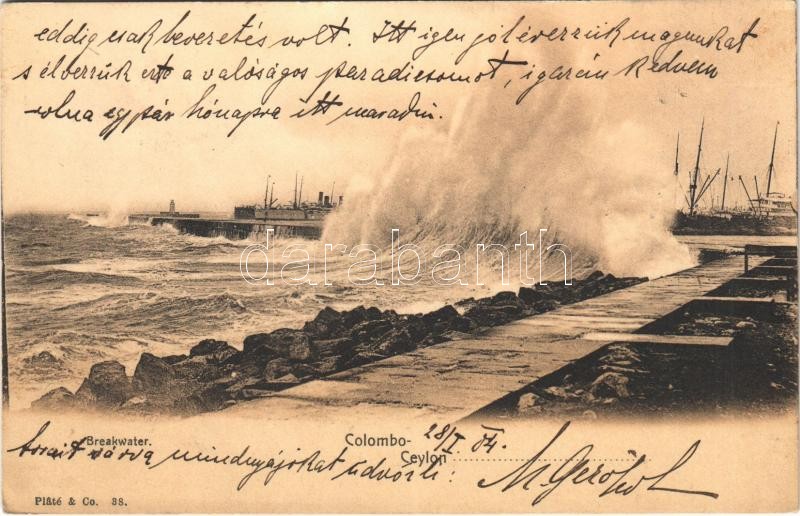 eddig csak bevezetés volt. Itt igen jól érezzük magunkat
s élvezzük ezt a valóságos paradicsomot, igazán kedvem
volna egypár hónapra itt maradni.
darabanth.com
Breakwater.
Colombo-
Ceylon
28/I 04.
Sorait várva mindnyájokat üdvözli:
Plâté & Co. 38.